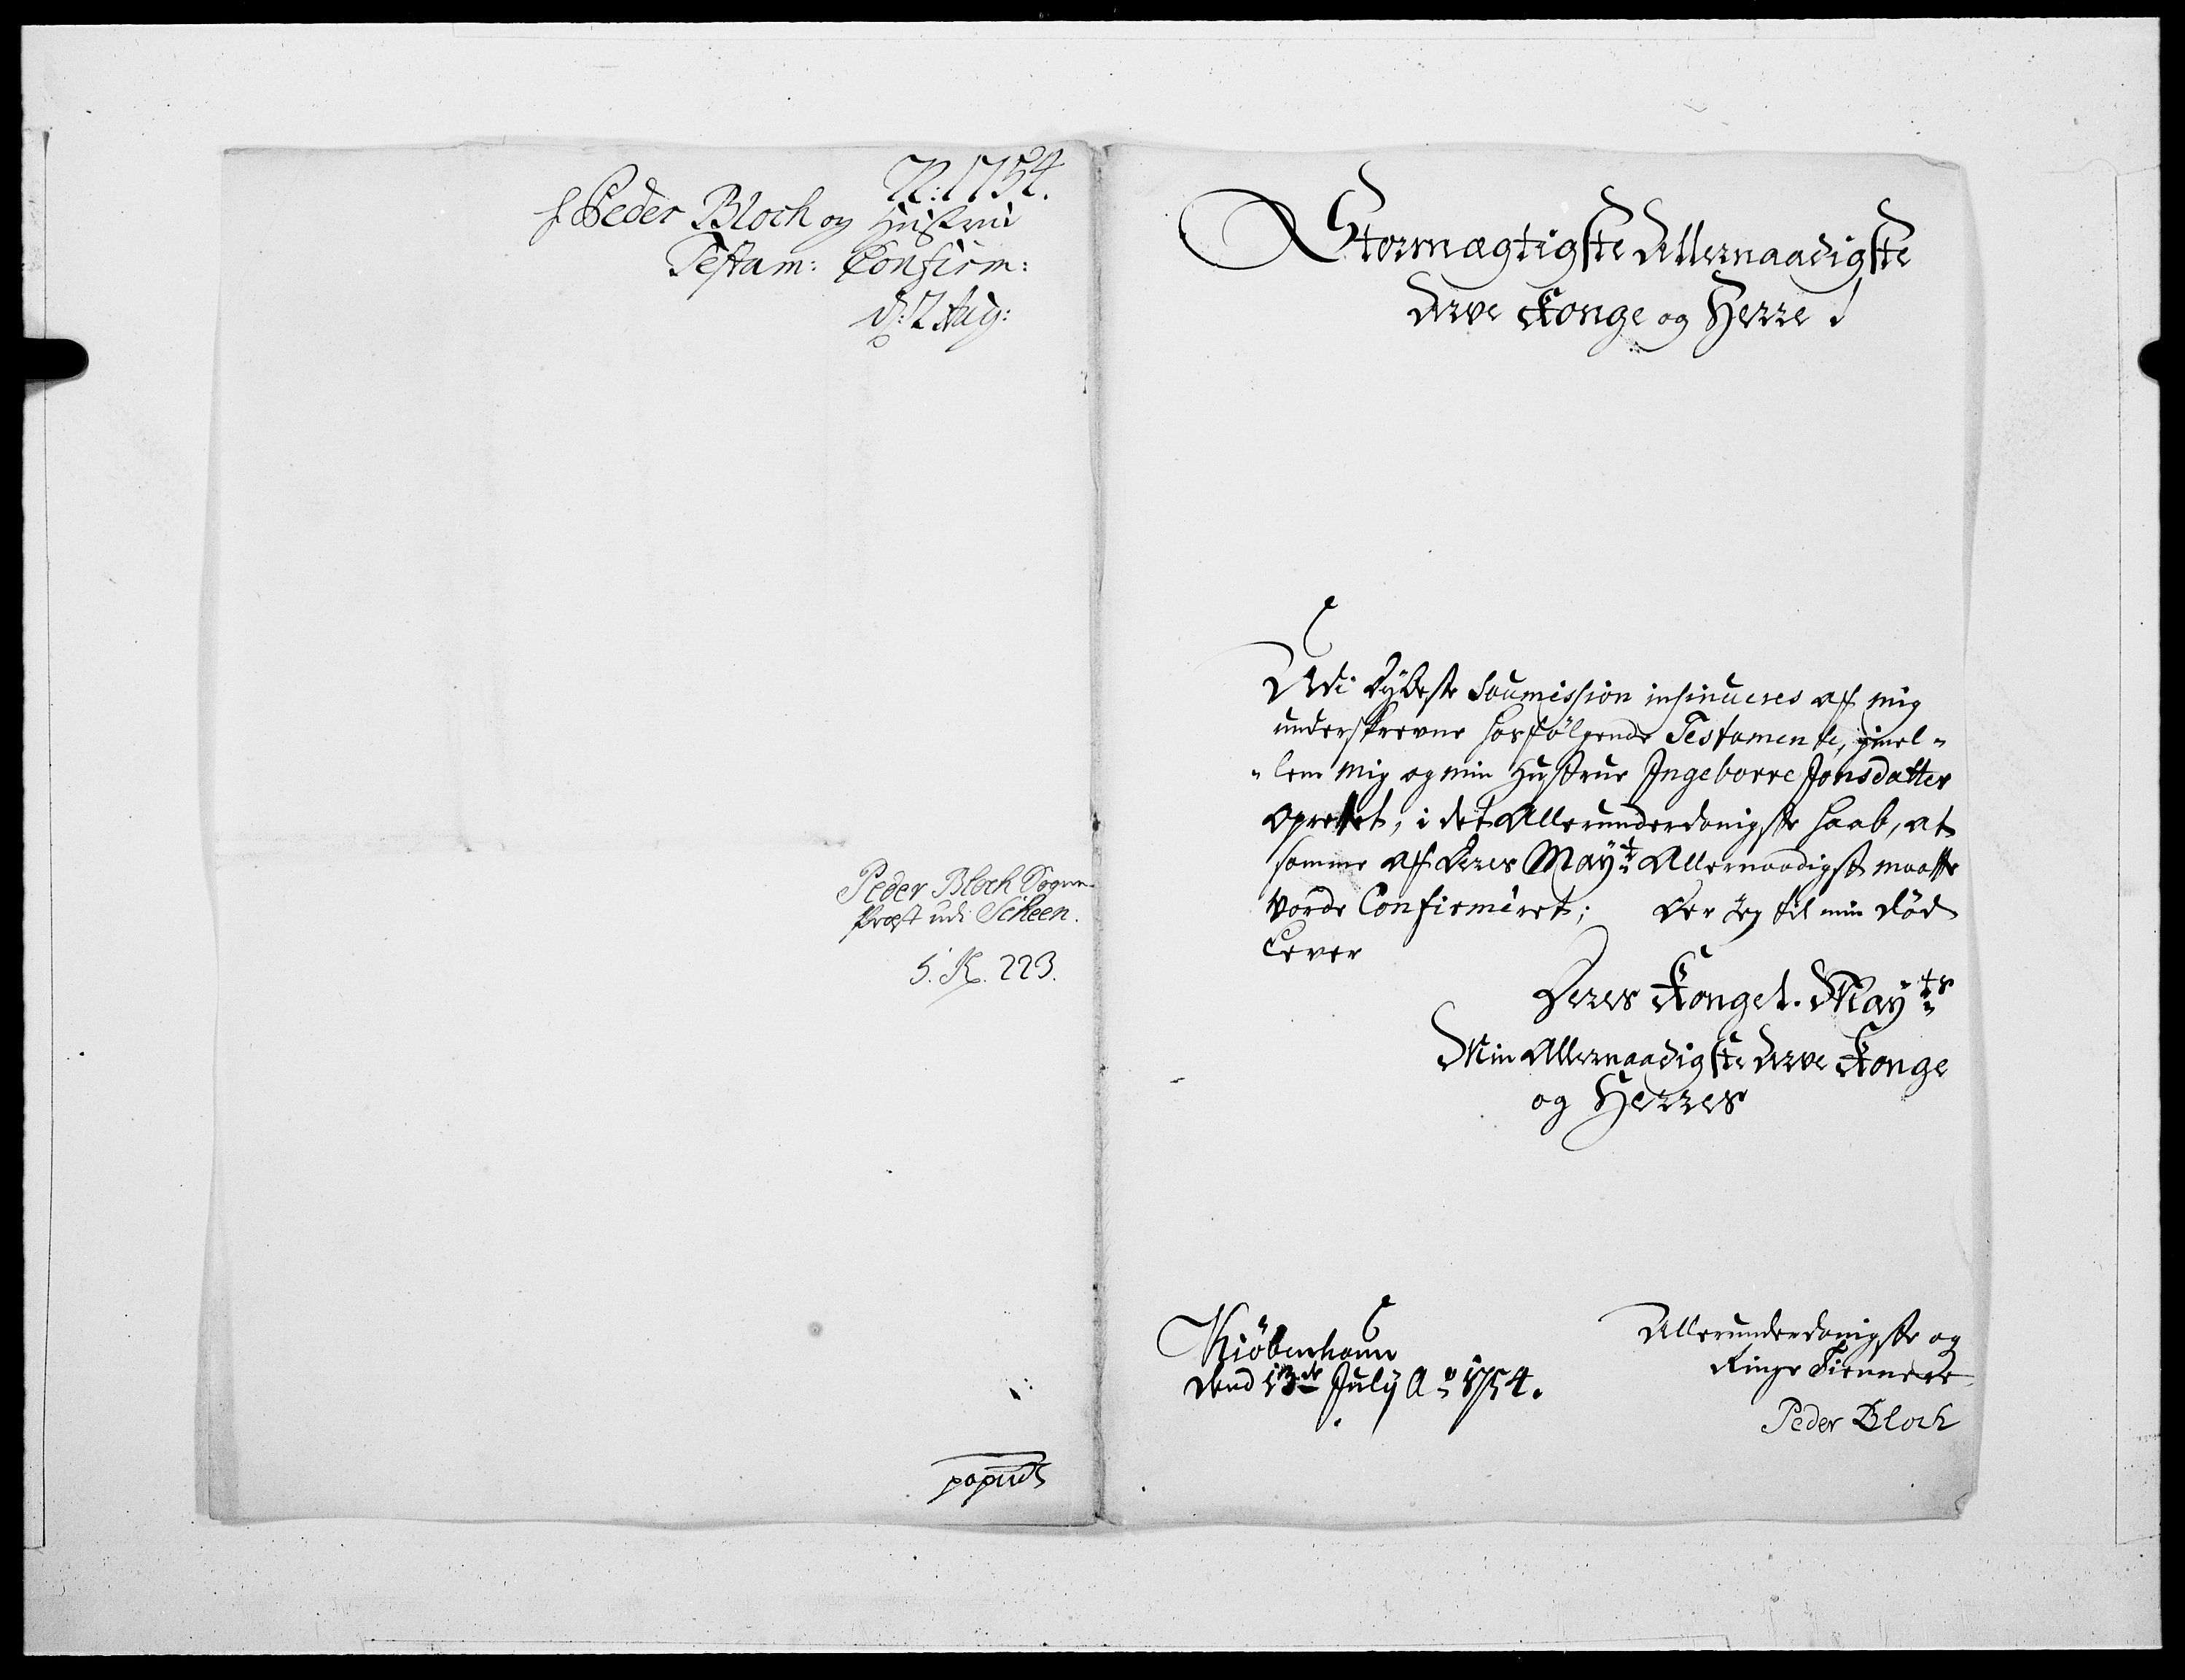 N: 1754.
f. Peder Bloch og Hustrue
Testam: Confirm:
d: 2 Aug:
Peder Bloch Sogne-
Præst udi Scheen.
S. K. 223.
Stormægtigste Allernaadigste
Arve Konge og Herre!
Udi dybeste Soumission insinueres af mig
underskrevne hosfölgende Testamente, imel-
-lem mig og min Hustrue Ingeborre Jonsdatter
oprettet, i det Allerunderdanigste haab, at
samme af Deres Mayt Allernaadigst maatte
vorde Confirmèret; Der jeg til min död
lever
Deres Kongel. Mayts
Min Allernaadigste Arve Konge
og Herres
Kiöbenhaun
dend 13de July Ao 1754.
Allerunderdanigste og
Ringe Tiennere
Peder Bloch